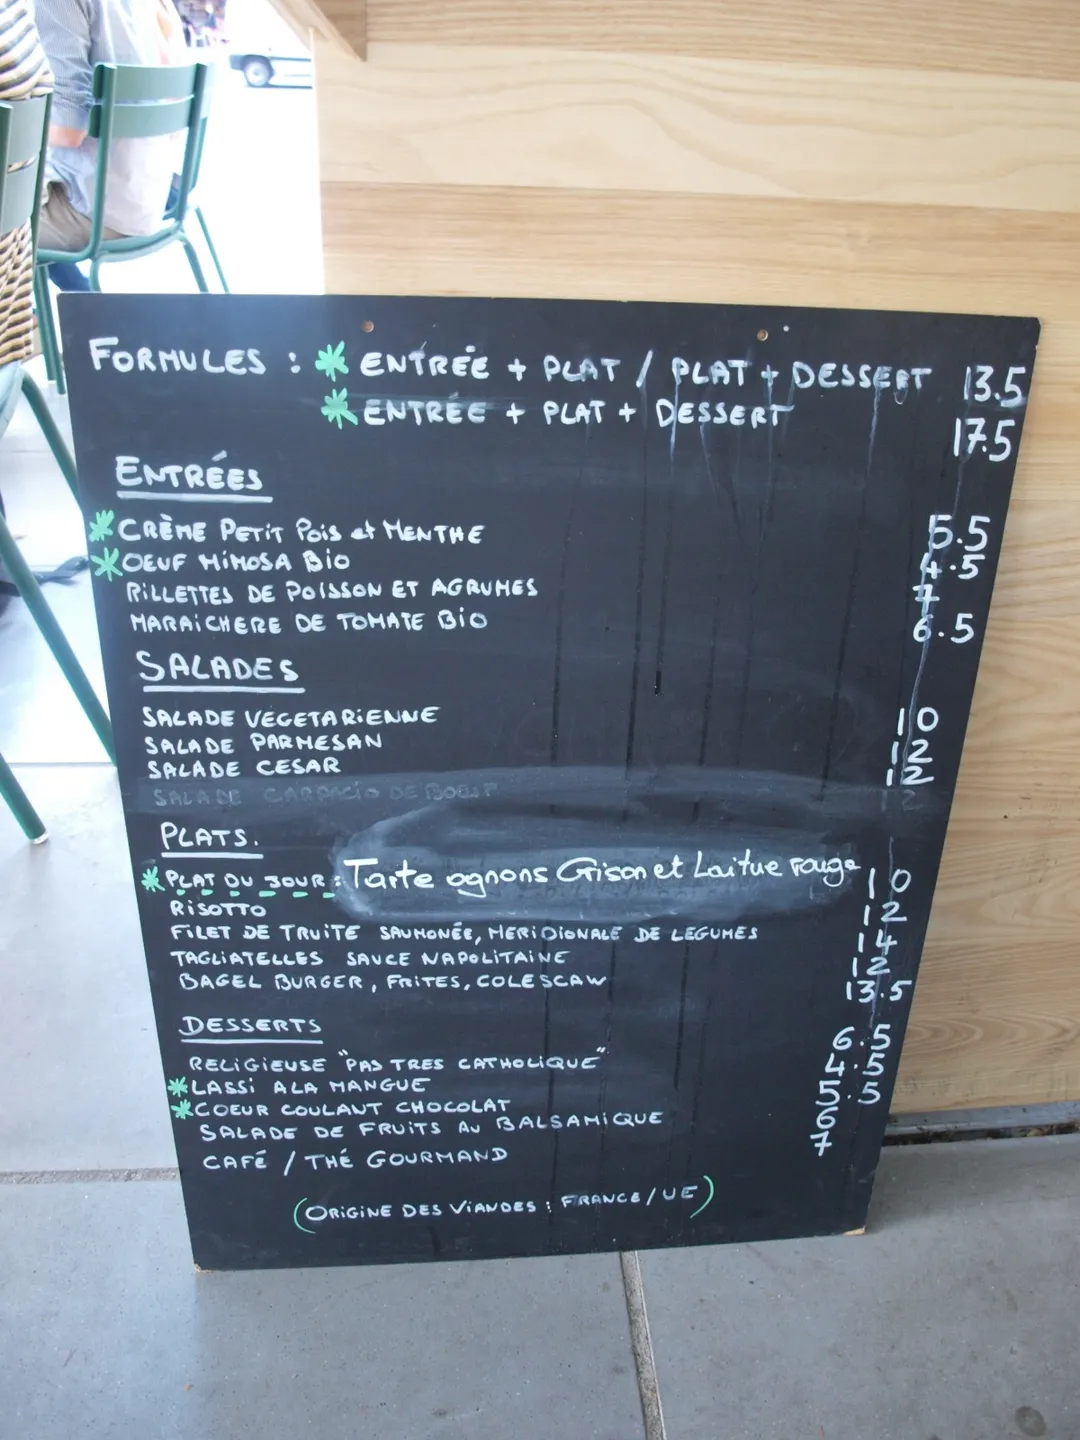 FORMULES : * ENTRÉE + PLAT / PLAT + DESSERT 13.5
* ENTRÉE + PLAT + DESSERT 17.5
ENTRÉES
* CRÈME PETIT POIS et MENTHE 5.5
* OEUF MIMOSA BIO 4.5
RILLETTES DE POISSON ET AGRUMES 7
MARAICHERE DE TOMATE BIO 6.5
SALADES
SALADE VEGETARIENNE 10
SALADE PARMESAN 12
SALADE CESAR 12
SALADE CARPACIO DE BOEUF 12
PLATS.
* PLAT DU JOUR : Tarte ognons Grison et Laitue rouge 10
RISOTTO 12
FILET DE TRUITE SAUMONÉE, MERIDIONALE DE LEGUMES 14
TAGLIATELLES SAUCE NAPOLITAINE 12
BAGEL BURGER, FRITES, COLESCAW 13.5
DESSERTS
RELIGIEUSE "PAS TRES CATHOLIQUE" 6.5
* LASSI A LA MANGUE 4.5
* COEUR COULANT CHOCOLAT 5.5
SALADE DE FRUITS AU BALSAMIQUE 6
CAFÉ / THÉ GOURMAND 7
(ORIGINE DES VIANDES : FRANCE/UE)